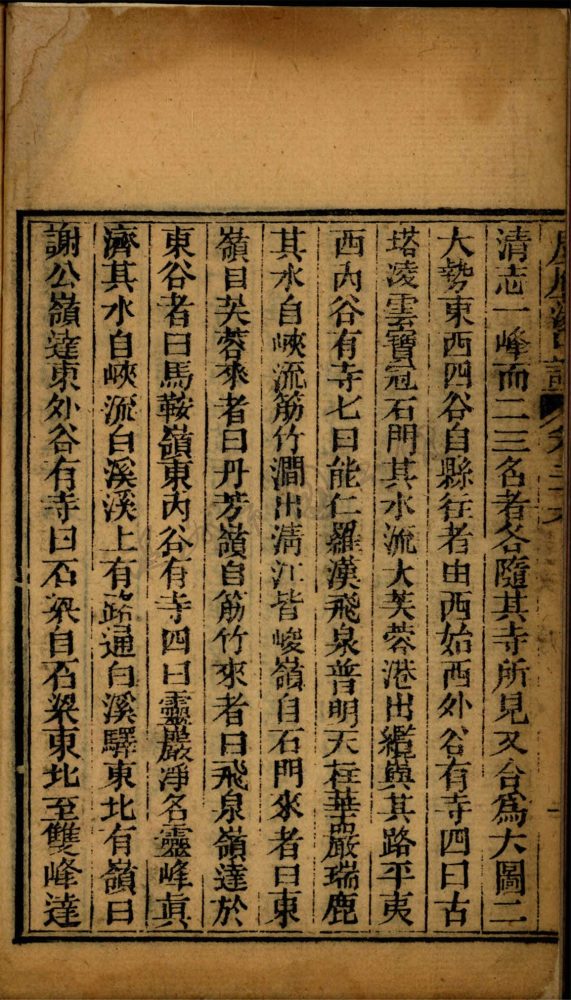 清志一峰而二三名者各隨其寺所見又合為大圖二
大勢東西四谷自縣往者由西始西外谷有寺四曰古
塔淩雲寶冠石門其水流大芙蓉港出纜輿其路平夷
西內谷有寺七曰能仁羅漢飛泉普明天柱華嚴瑞鹿
其水自峽流筋竹澗出淸江皆峻嶺自石門來者曰東
嶺自芙蓉來者曰丹芳嶺自筋竹來者曰飛泉嶺達於
東谷者曰馬鞍嶺東內谷有寺四曰靈巖淨名靈峰眞
濟其水自峽流白溪溪上有路通白溪驛東北有嶺曰
謝公嶺達東外谷有寺曰石梁自石梁東北至雙峰達